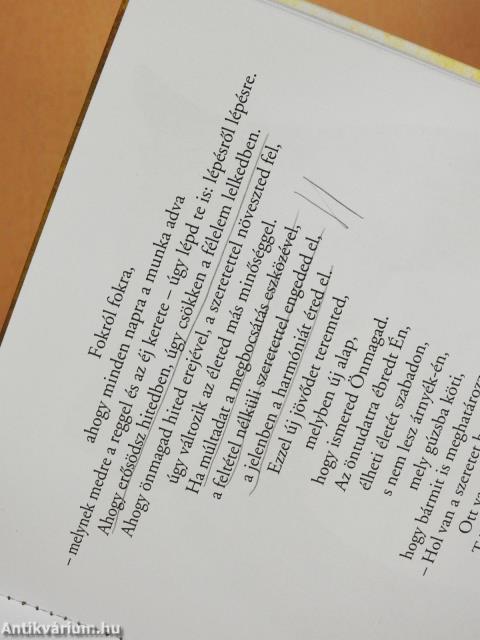 Fokról fokra,
ahogy minden napra a munka adva
– melynek medre a reggel és az éj kerete – úgy lépd te is: lépésről lépésre.
Ahogy erősödsz hitedben, úgy csökken a félelem lelkedben.
Ahogy önmagad hited erejével, a szeretettel növeszted fel,
úgy változik az életed más minőséggel.
Ha múltadat a megbocsátás eszközével,
a feltétel nélküli szeretettel engeded el,
a jelenben a harmóniát éred el.
Ezzel új jövődet teremted,
melyben új alap,
hogy ismered Önmagad.
Az öntudatra ébredt Én,
élheti életét szabadon,
s nem lesz árnyék-én,
mely gúzsba köti,
hogy bármit is meghatározz
– Hol van a szeretet h
Ott va
Antikvárium.hu